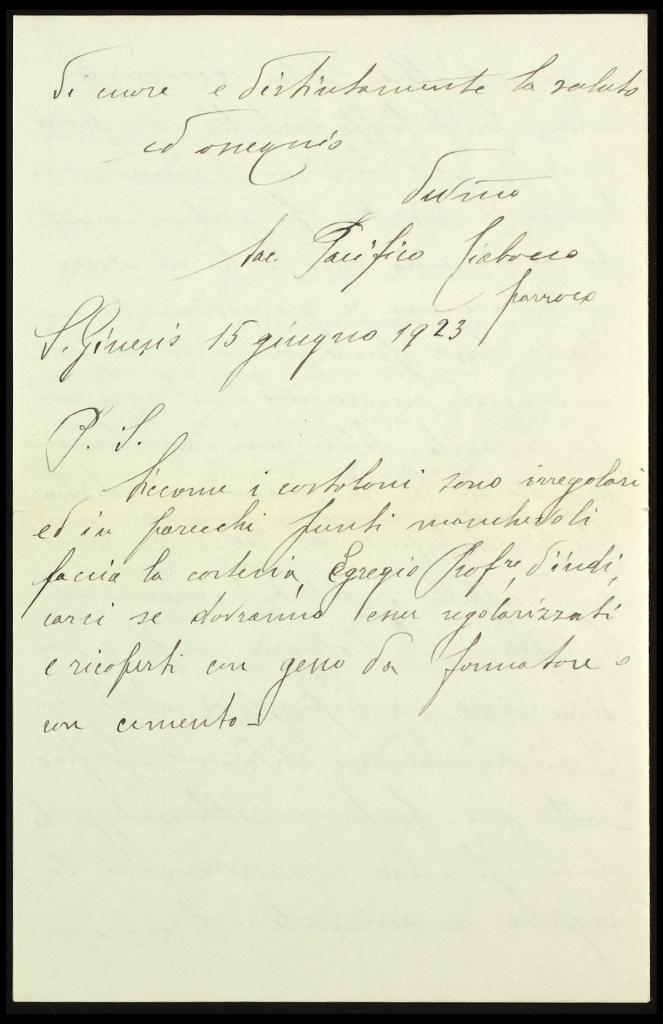 di cuore e distintamente la saluto
ed ossequio
Devmo
Sac. Pacifico Ciabocco
parroco
S. Ginesio 15 giugno 1923
P. S.
Siccome i costoloni sono irregolari
ed in parecchi punti manchevoli
faccia la cortesia, Egregio Profre, d'indi,
carci se dovranno esser regolarizzati
e ricoperti con gesso da formatore o
con cemento-